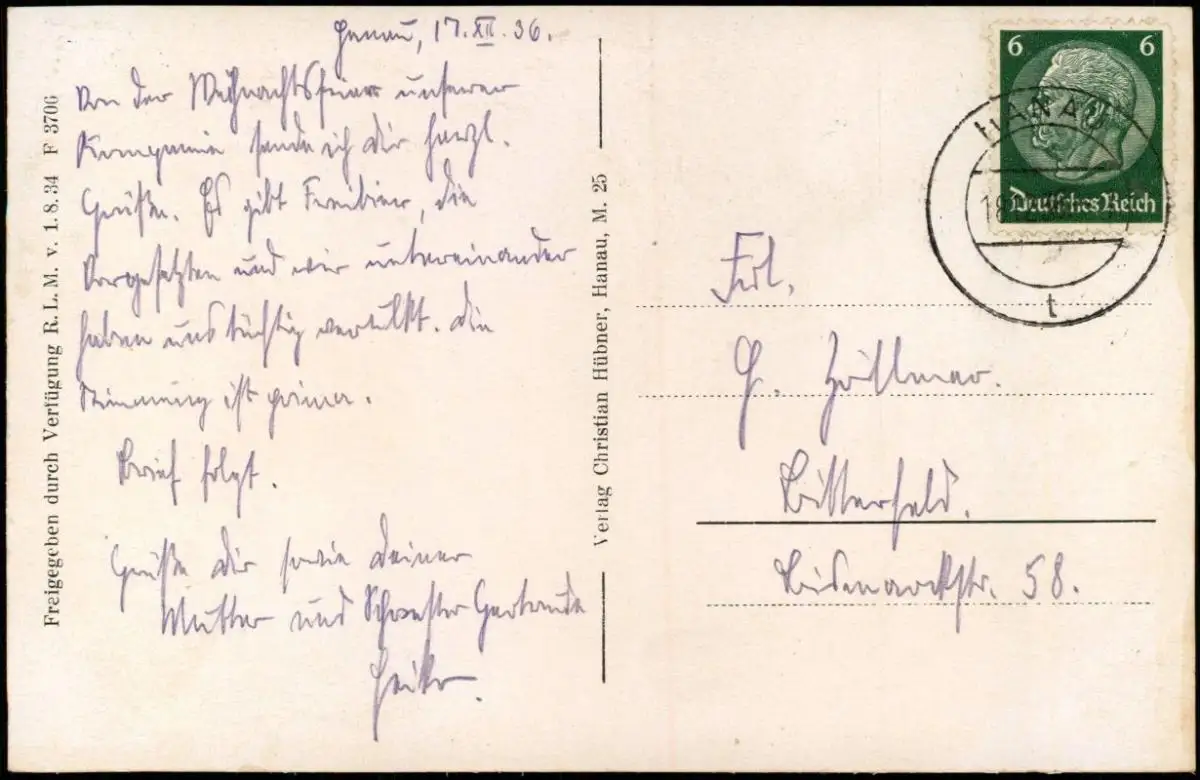 Hanau, 17. XII. 36.
Von der Weihnachtsfeier unserer
Kompanie sende ich Dir herzl.
Grüße. Es gibt Freibier, die
Vorgesetzten und wir untereinander
haben uns tüchtig verulkt. Die
Stimmung ist prima.
Brief folgt.
Grüße Dir sowie Deiner
Mutter und Schwester Gertraude
Frl.
G. Zöllmer.
Bitterfeld.
Bismarckstr. 58.
Freigegeben durch Verfügung R. L. M. v. 1. 8. 34 F 3706
Verlag Christian Hübner, Hanau, M. 25
6 6
Deutsches Reich
HANAU
t